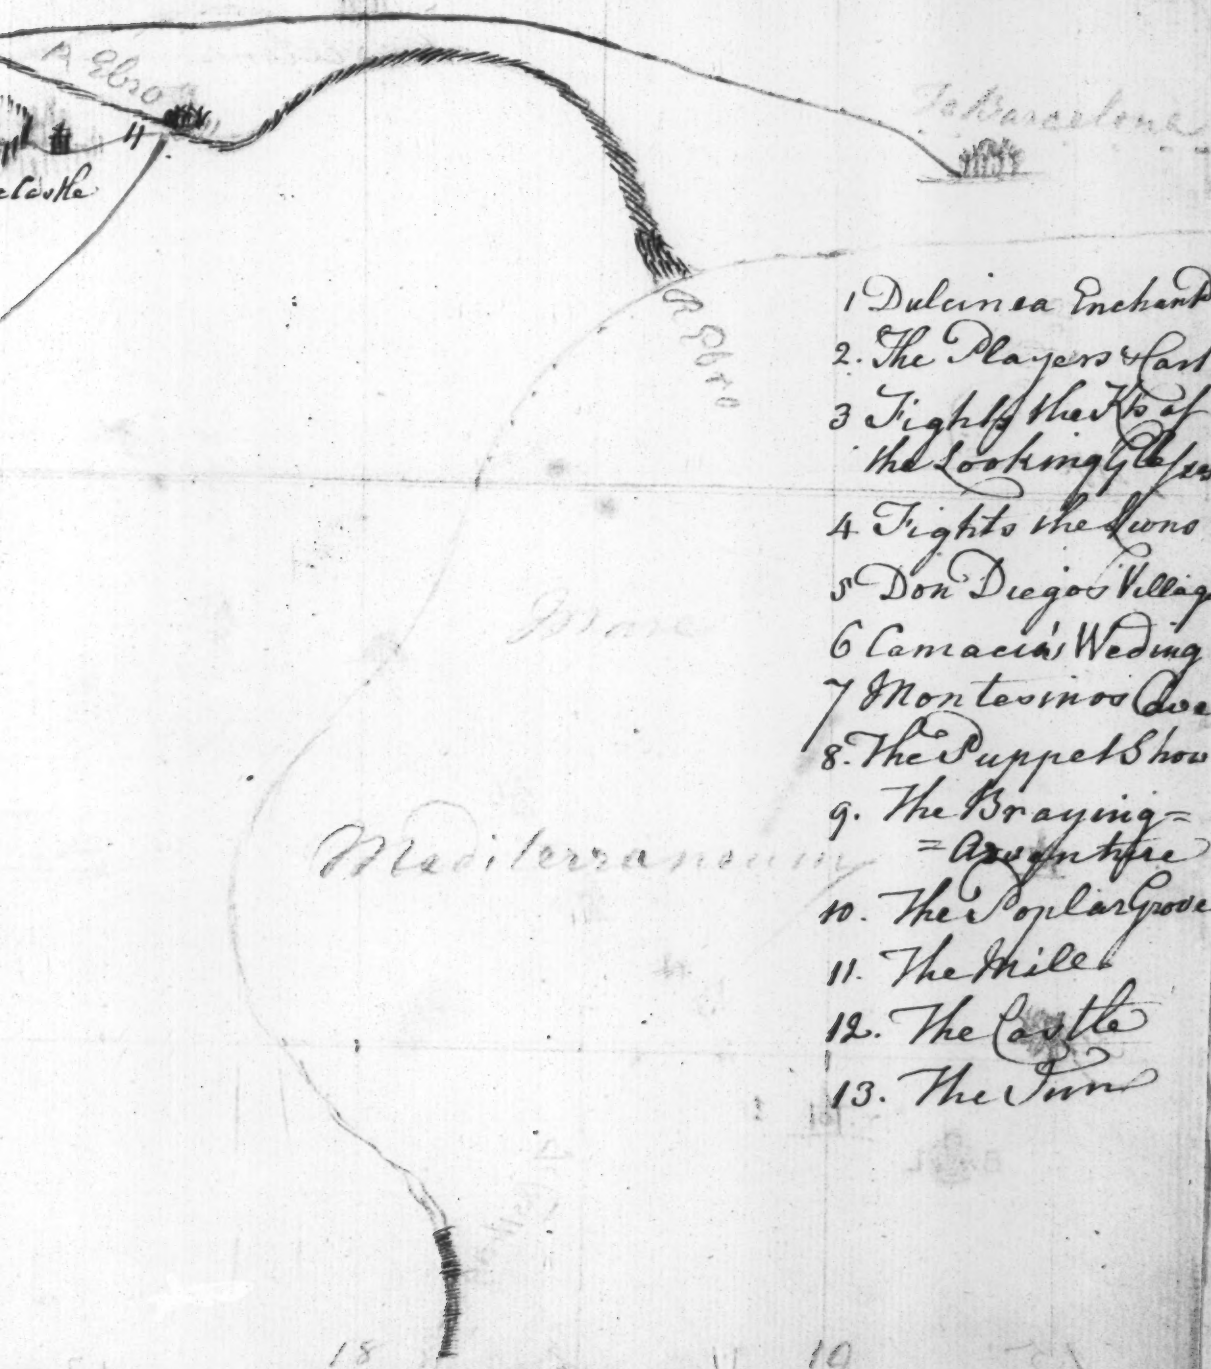 R Ebro
To Barcelona
11
R Ebro
1 Dulcinea Enchant
2. The Players Cart
3 Fights the Kt of
the Looking Glasses
4 Fights the Lions
5 Don Diegos Village
6 Camacia's Weding
7 Montesinos Cave
8. The Puppet Show
9. The Braying=
=Adventure
10. The Poplar Grove
11. The Mill
12. The Castle
13. The Inn
Mare
Mediterraneum
18
19